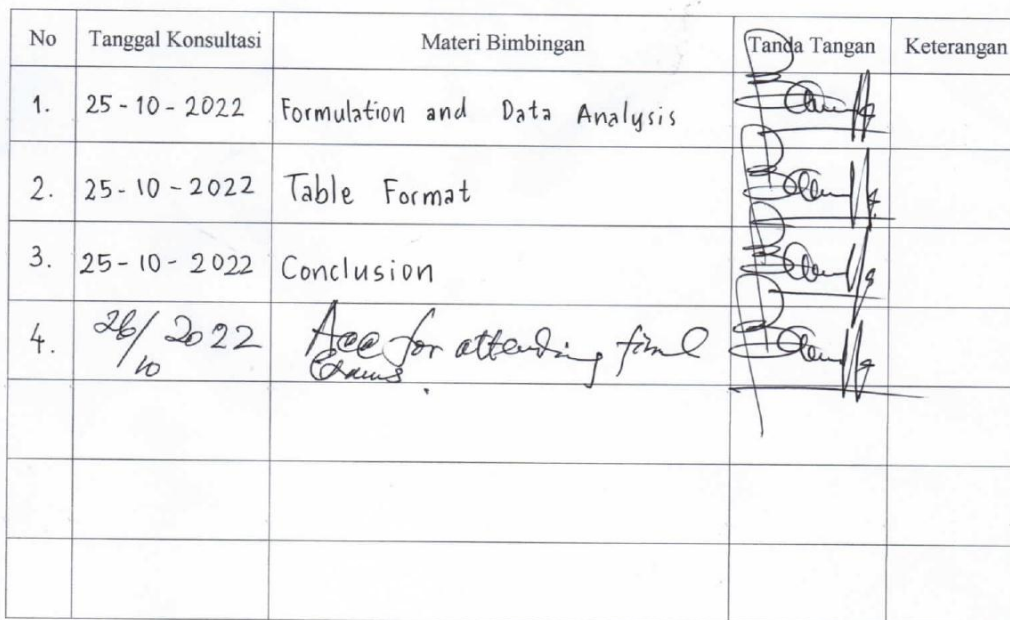 No Tanggal Konsultasi Materi Bimbingan Tanda Tangan Keterangan
1. 25-10-2022 Formulation and Data Analysis
2. 25-10-2022 Table Format
3. 25-10-2022 Conclusion
4. 26/10 2022 Acc for attending final
Exams.